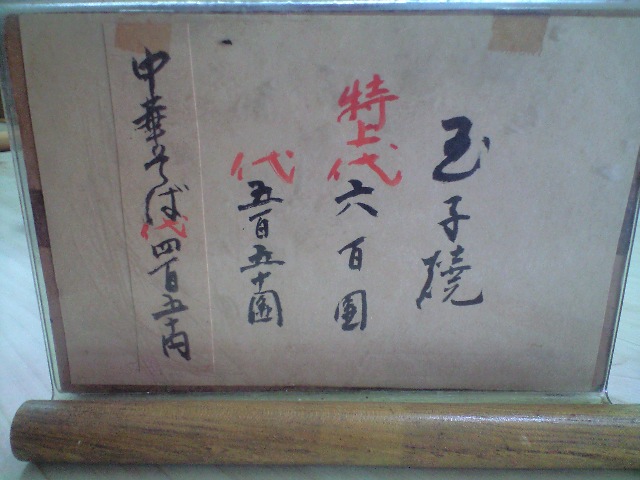 玉子燒
特上代六百圓
代五百五十圓
中華そば代四百五十円